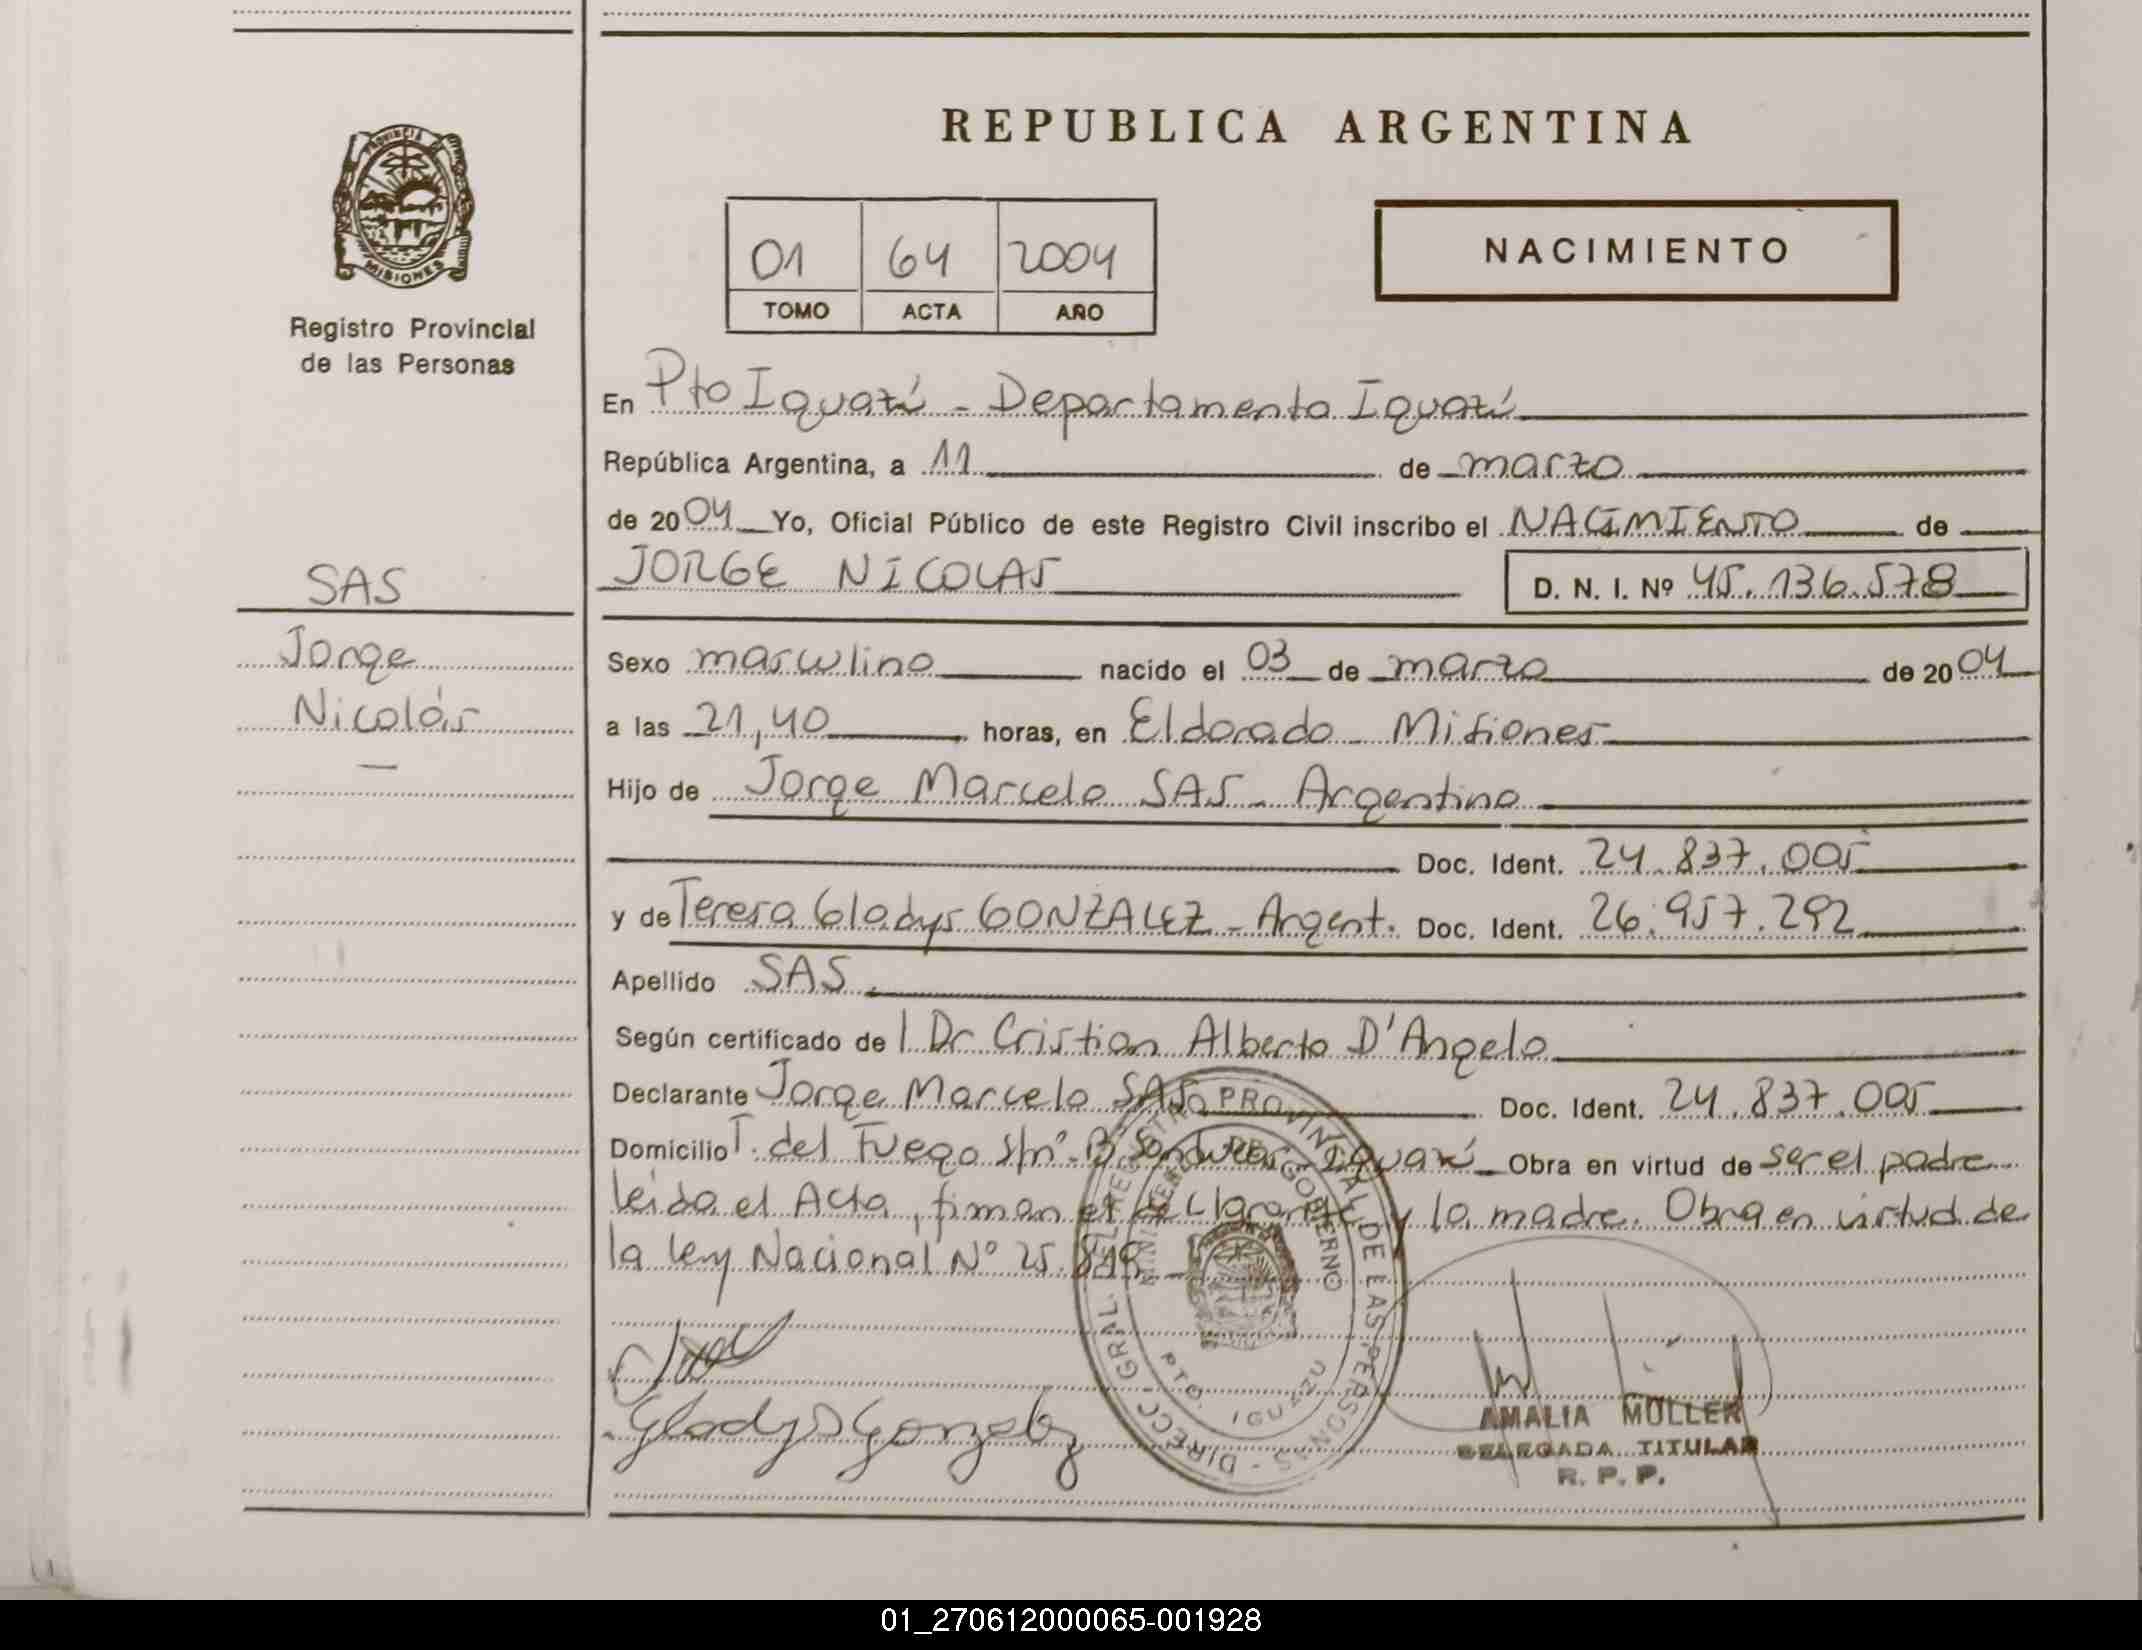 REPUBLICA ARGENTINA
PROVINCIA DE MISIONES
Registro Provincial
de las Personas
01 64 2004
TOMO ACTA AÑO
NACIMIENTO
En Pto Iguazú - Departamento Iguazú
República Argentina, a 11 de marzo
de 2004 Yo, Oficial Público de este Registro Civil inscribo el NACIMIENTO de
JORGE NICOLAS D. N. I. Nº 45.136.578
SAS
Jorge
Nicolás
Sexo masculino nacido el 03 de marzo de 2004
a las 21,40 horas, en Eldorado - Misiones
Hijo de Jorge Marcelo SAS - Argentino
Doc. Ident. 24.837.005
y de Teresa Gladys GONZALEZ - Argent. Doc. Ident. 26.957.292
Apellido SAS.
Según certificado de l Dr Cristian Alberto D'Angelo
Declarante Jorge Marcelo SAS Doc. Ident. 24.837.005
Domicilio T. del Fuego s/nº - Bº - Iguazú - Obra en virtud de ser el padre
leida el Acta, firman el declarante y la madre. Obra en virtud de
la ley Nacional Nº 25.819 -
Gladys Gonzalez
DIRECC. GRAL. DEL REGISTRO PROVINCIAL DE LAS PERSONAS -
MINISTERIO DE GOBIERNO
PTO. IGUAZU
AMALIA MULLER
DELEGADA TITULAR
R. P. P.
01_270612000065-001928